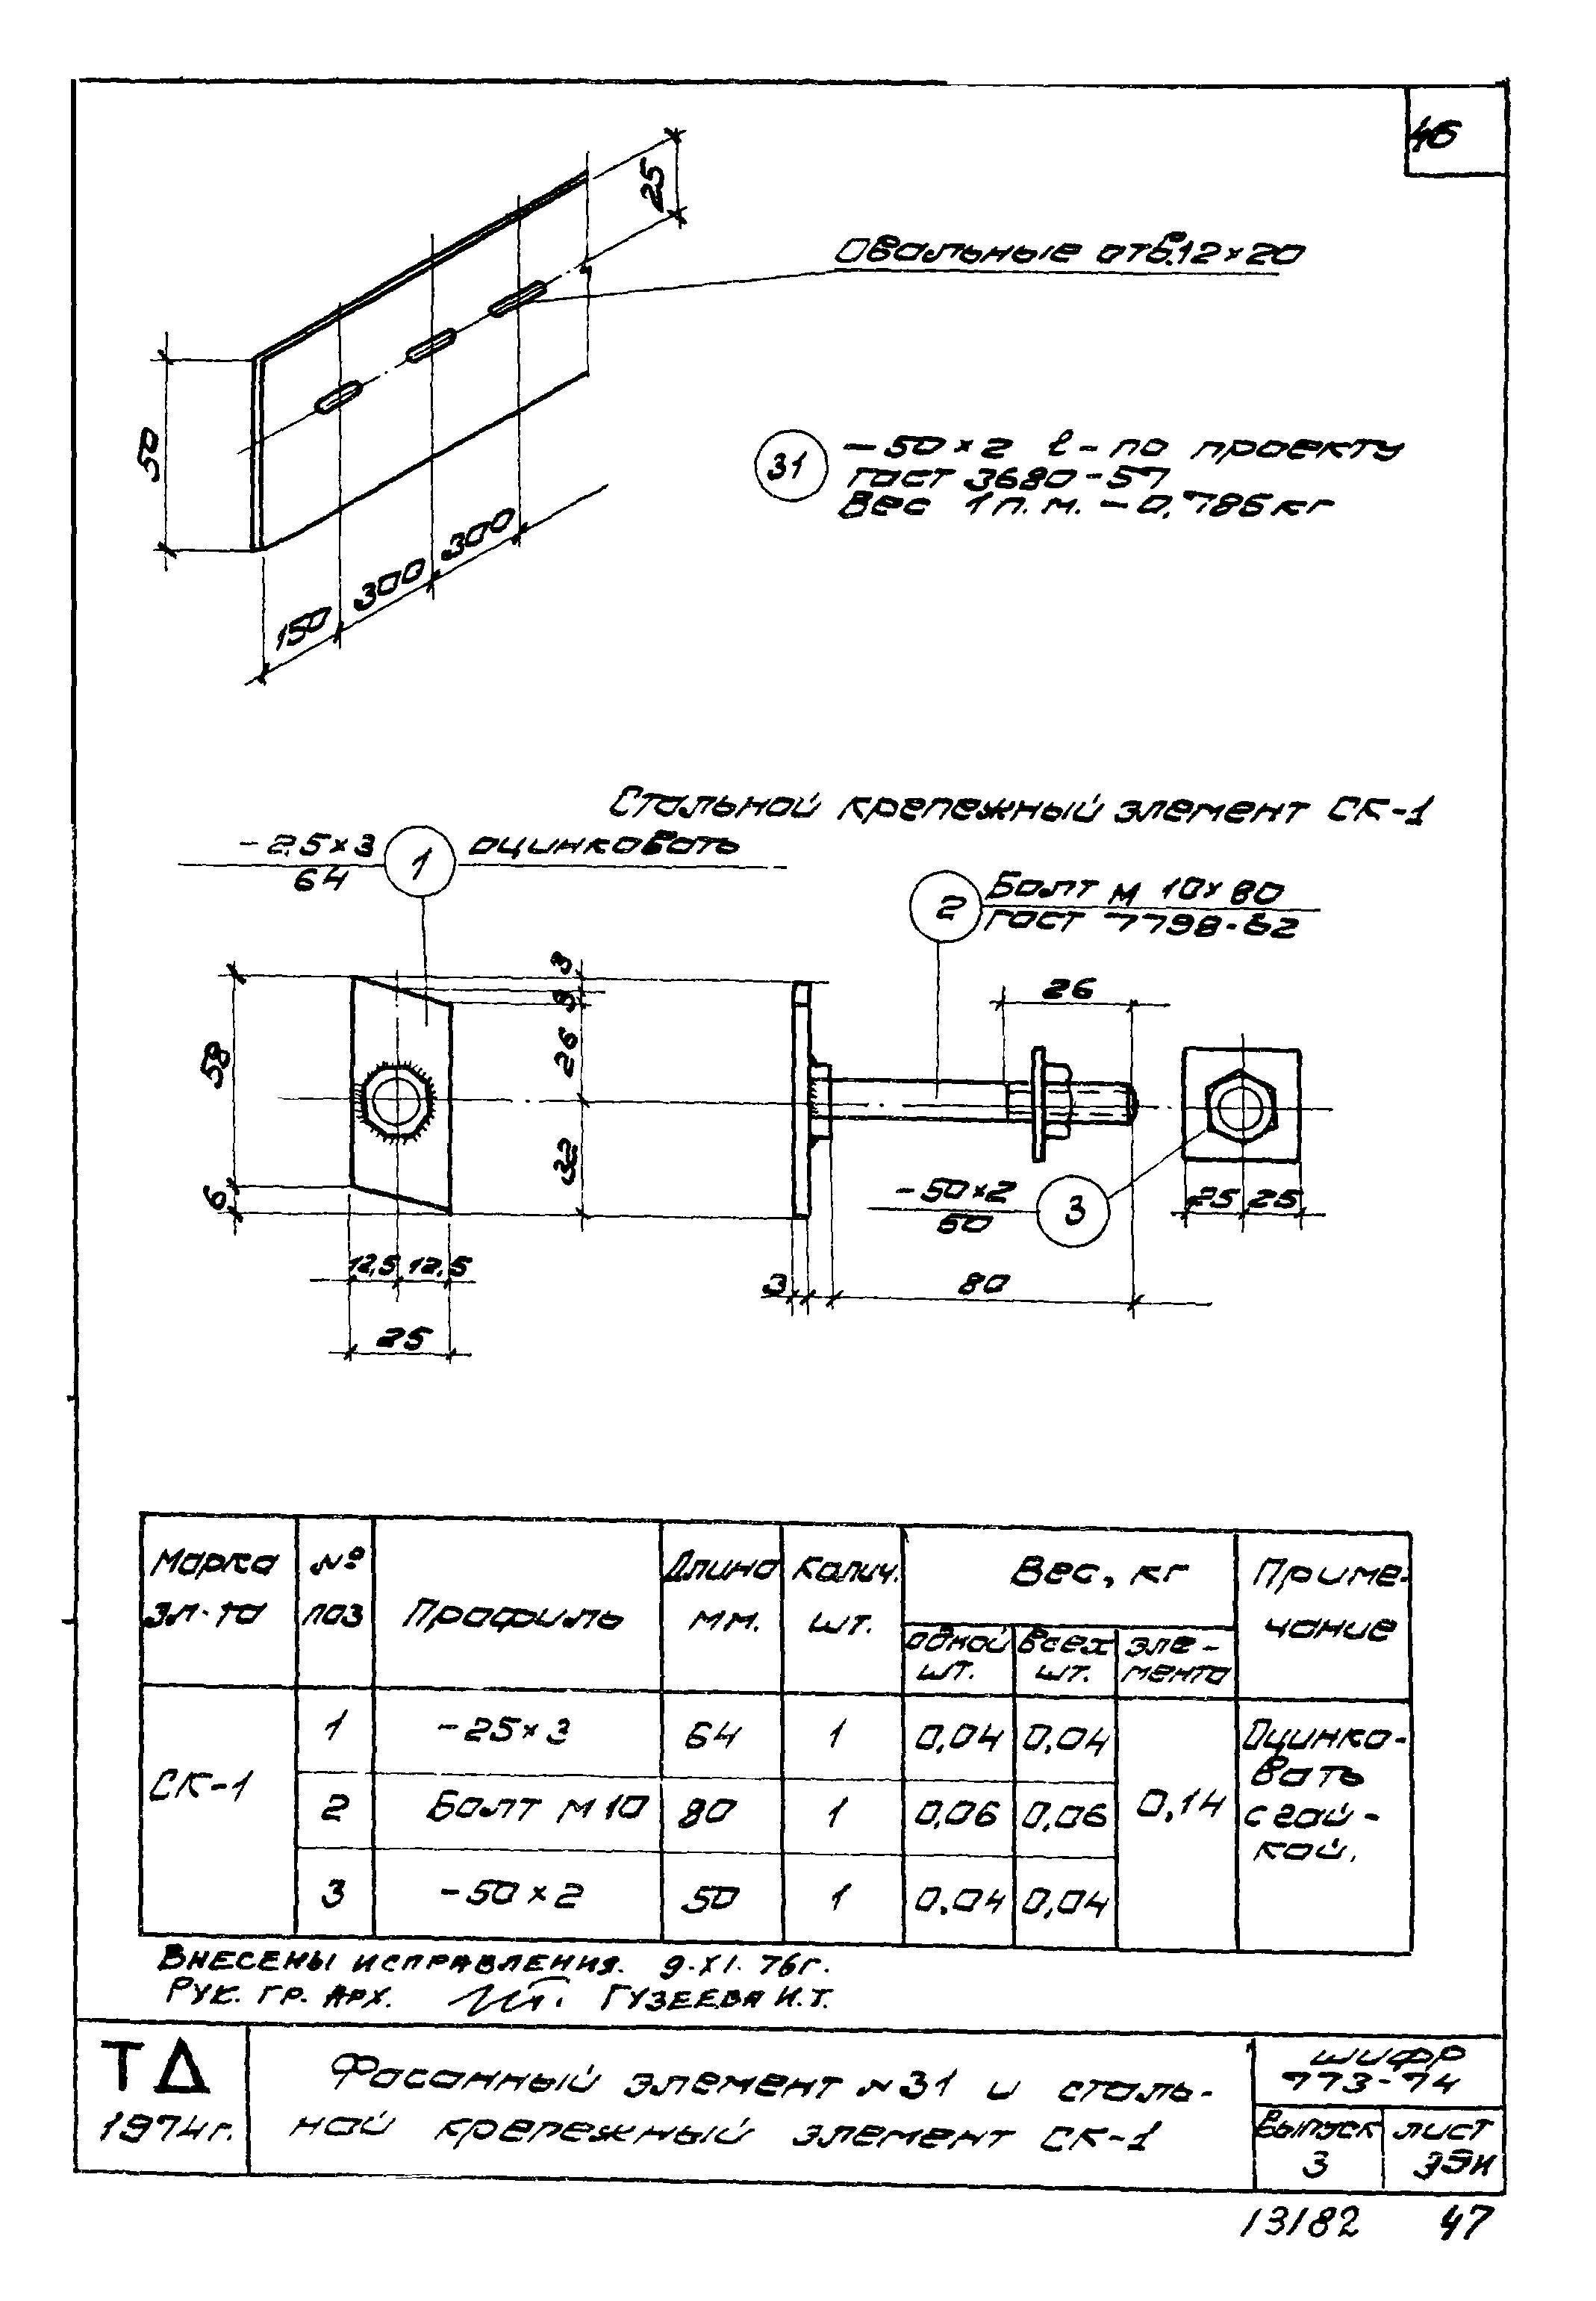 46
25
Овальные отв.12×20
50
31
-50×2 ℓ-по проекту
ГОСТ 3680-57
Вес 1п.м. - 0,785кг
150 300 300
Стальной крепежный элемент СК-1
-25×3
64
1
оцинковать
2
Болт М 10×80
ГОСТ 7798-62
3
3
26
58
26
32
6
-50×2
50
3
25 25
12,5 12,5
3
80
25
Марка эл-та
№ поз
Профиль
Длина мм.
Колич. шт.
Вес, кг
одной шт.
всех шт.
элемента
Примечание
СК-1
1 -25×3 64 1 0,04 0,04
2 Болт М10 80 1 0,06 0,06
3 -50×2 50 1 0,04 0,04
0,14
Оцинко-
вать
с гай-
кой.
Внесены исправления. 9.XI.76г.
Рук. гр. арх. Гузеева И.Т.
ТД
1974г.
Фасонный элемент №31 и сталь-
ной крепежный элемент СК-1
шифр
773-74
выпуск
3
лист
39И
13182 47